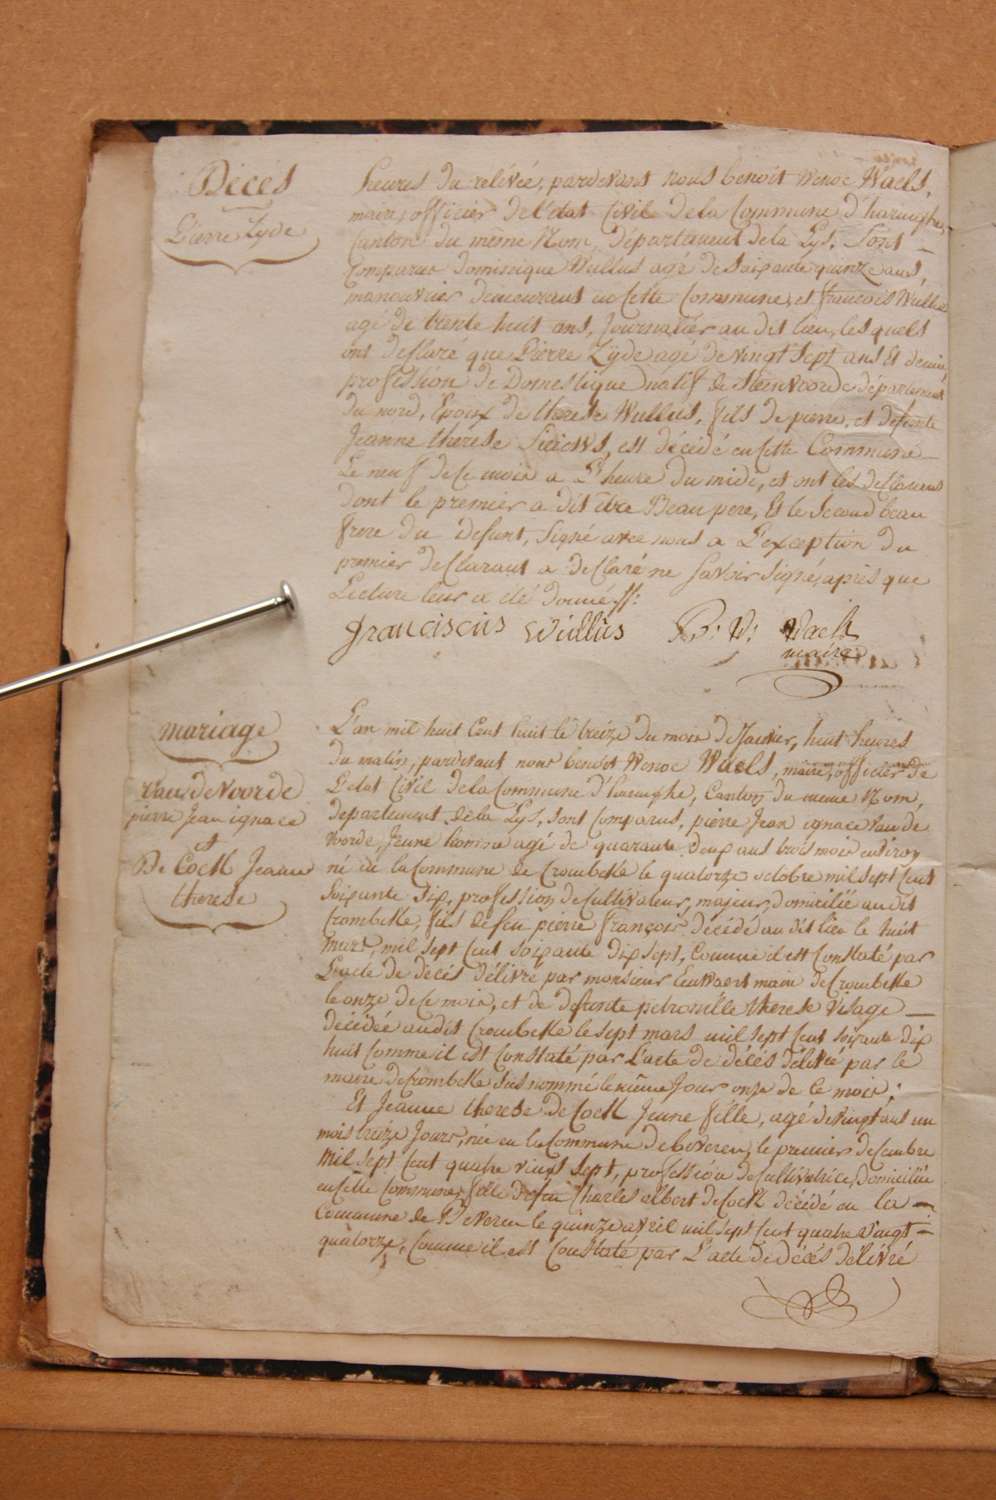 Décès
Pierre Zyde
heures du relevée, pardevant nous benoit Wenoc Waels,
maire, officier de l'état Civil de la Commune d'haringhe,
Canton du même Nom, Département de la Lys, Sont
Comparus dominique Wullus agé de soixante quinze ans,
manouvrier demeurant en Cette Commune, et françois Wullus
agé de trente huit ans, Journalier au dit lieu, les quels
ont declaré que Pierre Zyde agé de vingt sept ans Et demi,
profession de Domestique natif de Steenvoorde département
du nord, Epoux de therese Wullus, fils de pierre, et defunte
Jeanne therese, est décédé en Cette Commune
Le neuf de Ce mois a heure du midi, et ont les declarans
dont le premier a dit être Beau pere, Et le Second beau
frere du Defunt, Signé avec nous a L'exception du
premier declarant a declaré ne savoir Signé, après que
Lecture leur a été donnée
Franciscus Wullus B: W: Waels
maire
mariage
Van de Voorde
pierre Jean ignace
et
De Cock Jeanne
therese
L'an mil huit Cent huit le treize du mois de Janvier, huit heures
du matin, pardevant nous benoit Wenoc Waels, maire, officier de
L'état Civil de la Commune d'haringhe, Canton du meme Nom,
departement de la Lys, sont Comparus, pierre Jean ignace Van de
Voorde, Jeune homme agé de quarante deux ans trois mois environ
né en la Commune de Crombeke le quatorze octobre mil sept Cent
Soixante Six, profession de Cultivateur, majeur, domicilié au dit
Crombeke, fils de feu pierre françois, décédé au dit lieu le huit
Mars, mil sept Cent soixante dix sept, Comme il est Constaté par
L'acte de décès délivré par monsieur maire de Crombeke
le onze de Ce mois, et de defunte petronille therese Visage
décédée audit Crombeke le sept mars mil sept Cent soixante dix
huit Comme il est Constaté par L'acte de décès délivré par le
maire de Crombeke sus nommé le même Jour onze de Ce mois;
Et Jeanne therese de Cock Jeune fille, agé de vingt ans un
mois treize Jours, née en la Commune de beveren, le premier decembre
Mil sept Cent quatre vingt sept, profession de cultivatrice, Domiciliée
en Cette Commune, fille de feu Charles albert de Cock décédé en la
Commune de Beveren le quinze avril mil sept Cent quatre vingt
quatorze, Comme il est Constaté par L'acte de décès délivré